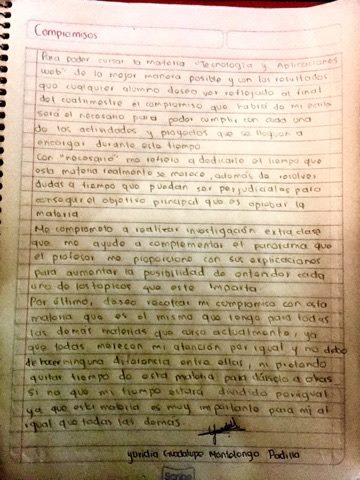 Compromisos
Para poder cursar la materia "Tecnología y Aplicaciones
web" de la mejor manera posible y con los resultados
que cualquier alumno desea ver reflejado al final
del cuatrimestre el compromiso que habrá de mi parte
será el necesario para poder cumplir con cada una
de las actividades y proyectos que se lleguen a
encargar durante este tiempo
Con "necesario" me refiero a dedicarle el tiempo que
esta materia realmente se merece, además de resolver
dudas a tiempo que puedan ser perjudiciales para
conseguir el objetivo principal que es aprobar la
materia
Me comprometo a realizar investigación extra clase
que me ayude a complementar el panorama que
el profesor me proporcione con sus explicaciones
para aumentar la posibilidad de entender cada
uno de los topicos que este imparta.
Por último, deseo recalcar mi compromiso con esta
materia que es el mismo que tengo para todas
las demás materias que curso actualmente, ya
que todas merecen mi atención por igual y no debo
de hacer ninguna diferencia entre ellas, ni pretendo
quitar tiempo de esta materia para dárselo a otras
si no que mi tiempo estará dividido por igual
ya que esta materia es muy importante para mi al
igual que todas las demás.
Yuridia Guadalupe Montelongo Padilla
Scribe